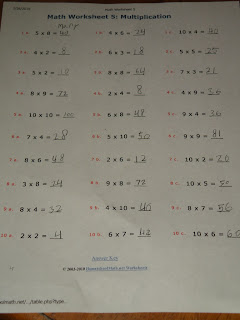 Math Worksheet 5
Math Worksheet 5: Multiplication
1 a. 5 x 8 = 40 1 b. 4 x 6 = 24 1 c. 10 x 4 = 40
2 a. 4 x 2 = 8 2 b. 6 x 3 = 18 2 c. 5 x 5 = 25
3 a. x 2 = 10 3 b. 8 x 8 = 64 3 c. 7 x 3 = 21
4 a. 8 x 9 = 72 4 b. 2 x 4 = 8 4 c. 4 x 9 = 36
5 a. 10 x 10 = 100 5 b. 6 x 8 = 48 5 c. 9 x 4 = 36
6 a. 7 x 4 = 28 6 b. 5 x 10 = 50 6 c. 9 x 9 = 81
7 a. 8 x 6 = 48 7 b. 2 x 6 = 12 7 c. 10 x 2 = 20
8 a. 3 x 8 = 24 8 b. 9 x 8 = 72 8 c. 10 x 5 = 50
9 a. 8 x 4 = 32 9 b. 4 x 10 = 40 9 c. 8 x 7 = 56
10 a. 2 x 2 = 4 10 b. 6 x 7 = 42 10 c. 10 x 6 = 60
Answer Key